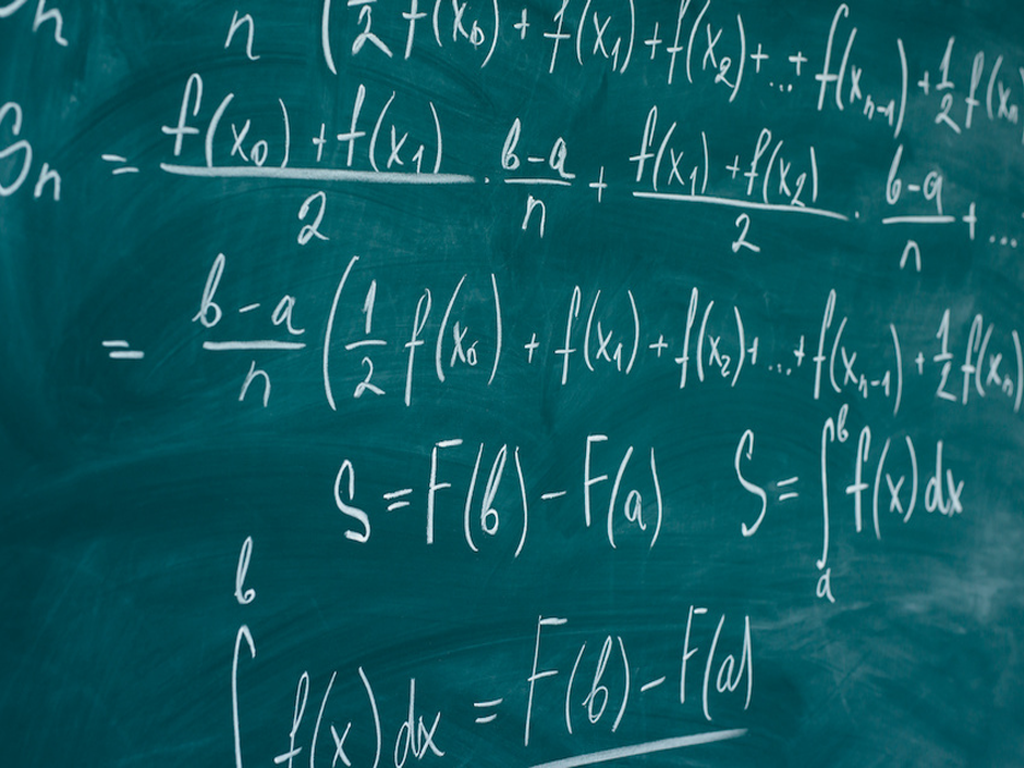 n n (1/2 f(x₀) + f(x₁) + f(x₂) + ... + f(xₙ₋₁) + 1/2 f(xₙ
Sₙ = (f(x₀) + f(x₁))/2 · (b-a)/n + (f(x₁) + f(x₂))/2 · (b-a)/n + ...
= (b-a)/n (1/2 f(x₀) + f(x₁) + f(x₂) + ... + f(xₙ₋₁) + 1/2 f(xₙ)
S = F(b) - F(a) S = ∫ₐᵇ f(x) dx
∫ᵇ f(x) dx = F(b) - F(a)